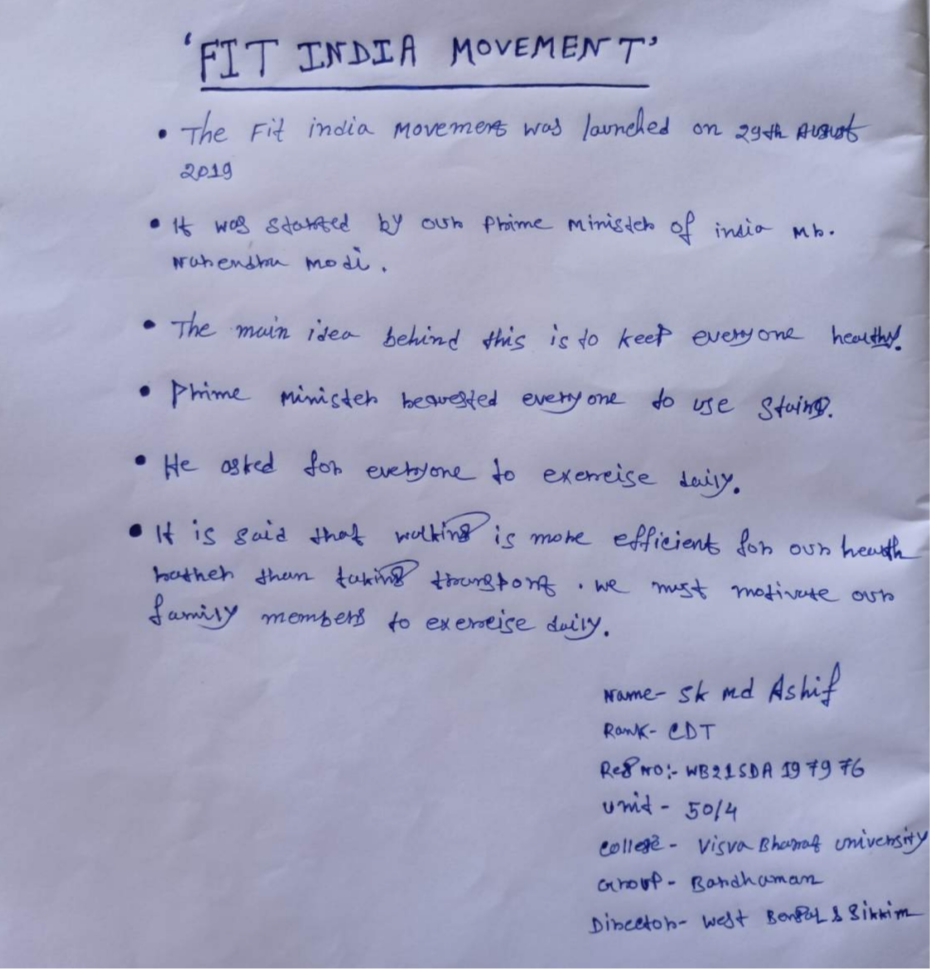 'FIT INDIA MOVEMENT'
• The Fit india Movement was launched on 29th August
2019
• It was started by our Prime Minister of india Mr.
Narendra Modi.
• The main idea behind this is to keep everyone healthy.
• Prime Minister requested everyone to use stairs.
• He asked for everyone to exercise daily.
• It is said that walking is more efficient for our health
rather than taking transport. we must motivate our
family members to exercise daily.
Name- Sk Md Ashif
Rank- CDT
Reg NO:- WB21SDA 197976
Unit - 50/4
College - Visva Bharati University
Group - Bardhaman
Director- West Bengal & Sikkim